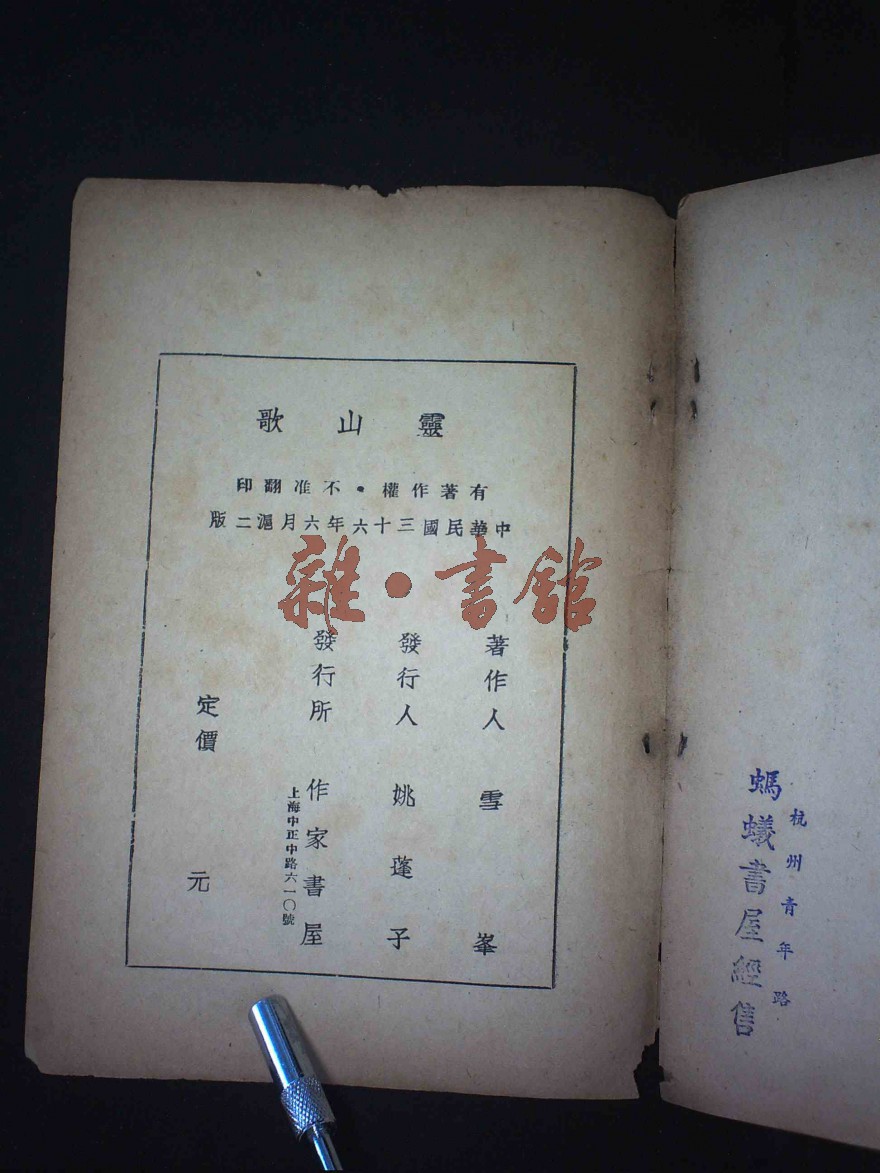 靈山歌
有著作權・不准翻印
中華民國三十六年六月滬二版
雜・書館
著作人 雪峯
發行人 姚蓬子
發行所 作家書屋
上海中正中路六一〇號
定價 元
杭州青年路
螞蟻書屋經售